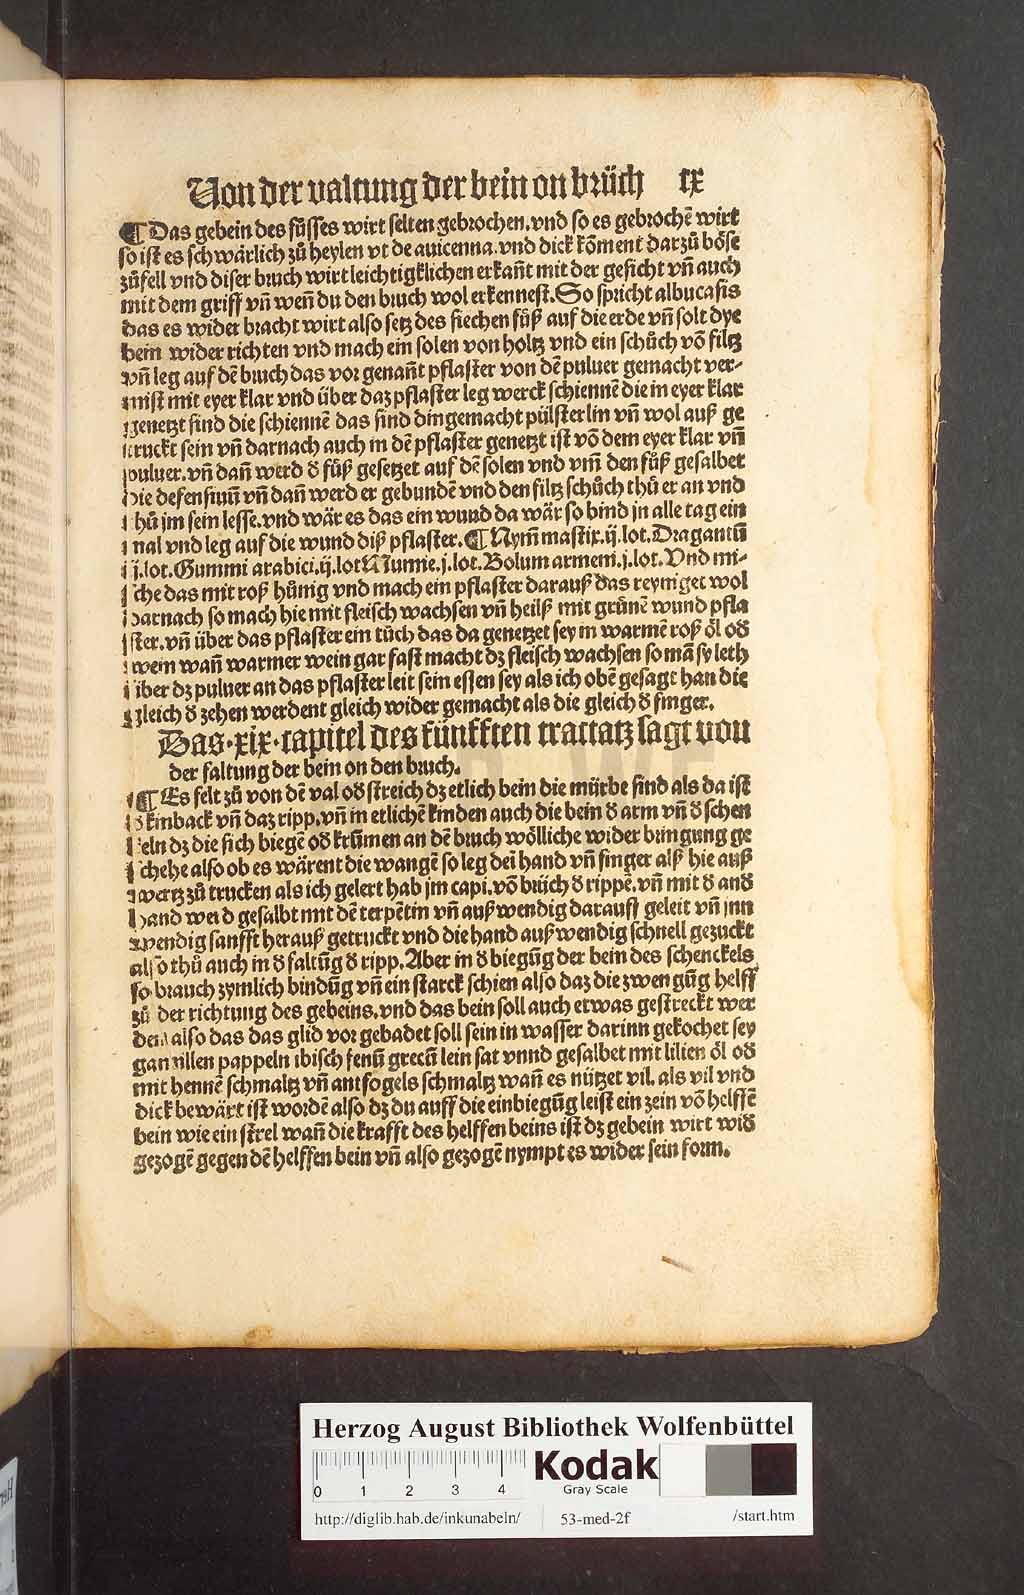 Von der valtung der bein on brüch lx
¶ Das gebein des fůsses wirt selten gebrochen. vnd so es gebrochē wirt
so ist es schwärlich zů heylen vt de auicenna. vnd dick kōment darzů böse
zůfell vnd diser bruch wirt leichtigklichen erkañt mit der gesicht vñ auch
mit dem griff vñ weñ du den bruch wol erkennest. So spricht albucasis
das es wider bracht wirt also setz des siechen fůß auf die erde vñ solt dye
bein wider richten vnd mach ein solen von holtz vnd ein schůch vō filtz
vñ leg auf dē bruch das vor genañt pflaster von dē puluer gemacht ver-
mist mit eyer klar vnd über daz pflaster leg werck schiennē die in eyer klar
genetzt sind die schiennē das sind dingemacht pülsterlin vñ wol auß ge
truckt sein vñ darnach auch in dē pflaster genetzt ist vō dem eyer klar vñ
puluer. vñ dañ werd d̄ fůß gesetzet auf dē solen vnd vm̄ den fůß gesalbet
die defensiuū vñ dañ werd er gebundē vnd den filtz schůch thů er an vnd
thů jm sein lesse. vnd wär es das ein wund da wär so bind jn alle tag ein
mal vnd leg auf die wund diß pflaster. ¶ Nym̄ mastix. ij. lot. Dragantū
ij. lot. Gummi arabici. ij. lot Mumie. j. lot. Bolum armeni. j. lot. Vnd mi-
sche das mit roß hůnig vnd mach ein pflaster darauß das reyniget wol
darnach so mach hie mit fleisch wachsen vñ heilß mit grůnē wund pfla
ster. vñ über das pflaster ein tůch das da genetzet sey in warmē roß öl od̄
wein wañ warmer wein gar fast macht dz fleisch wachsen so mā sy leth
über dz puluer an das pflaster leit sein essen sey als ich obē gesagt han die
gleich d̄ zehen werdent gleich wider gemacht als die gleich d̄ finger.
Das .xix. capitel des fünfften tractatz sagt von
der faltung der bein on den bruch.
¶ Es felt zů von dē val od̄ streich dz etlich bein die mürbe sind als da ist
d̄ kinback vñ daz ripp. vñ in etlichē kinden auch die bein d̄ arm vñ d̄ schen
keln dz die sich biegē od̄ krūmen an dē bruch wölliche wider bringung ge
schehe also ob es wärent die wangē so leg dein hand vñ finger alß hie auß
wertz zů trucken als ich gelert hab jm capi. vō brüch d̄ rippē. vñ mit d̄ and̄
hand werd gesalbt mit dē terpētin vñ außwendig darauff geleit vñ jnn
wendig sanfft herauß getruckt vnd die hand außwendig schnell gezuckt
also thů auch in d̄ faltūg d̄ ripp. Aber in d̄ biegūg der bein des schenckels
so brauch zymlich bindūg vñ ein starck schien also daz die zwengūg helff
zů der richtung des gebeins. vnd das bein soll auch etwas gestreckt wer
den also das das glid vor gebadet soll sein in wasser darinn gekochet sey
gamillen pappeln ibisch fenū grecū lein sat vnnd gesalbet mit lilien öl od̄
mit hennē schmaltz vñ antfogels schmaltz wañ es nützet vil. als vil vnd
dick bewärt ist wordē also dz du auff die einbiegūg leist ein zein vō helffē
bein wie ein strel wañ die krafft des helffen beins ist dz gebein wirt wid̄
gezogē gegen dē helffen bein vñ also gezogē nympt es wider sein form.
Herzog August Bibliothek Wolfenbüttel
0 1 2 3 4
Kodak
Gray Scale
http://diglib.hab.de/inkunabeln/ 53-med-2f /start.htm